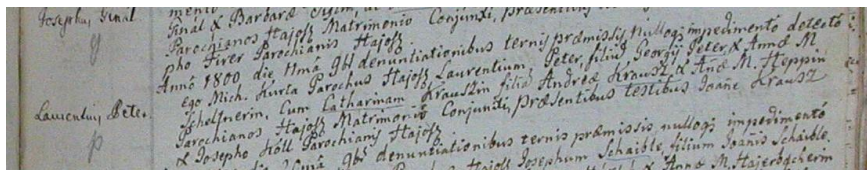 Josephus Ginál.
Ginál & Barbaræ
Parochianos Hajoss Matrimonio Conjunxi, præsentibus
pho Firer Parochianis Hajoss
Annô 1800 die 11mâ 9bris denuntiationibus ternis præmissis, nulloqz impedimentô detectô
ego Mich. Kurta Parochus Hajoss Laurentium Peter, filiũ Georgij Peter & Annæ M.
Schelsnerin, Cum Catharinam Krauszin filiã Andreæ Krausz & Añæ M. Heppin
Laurentius Peter.
Parochianos Hajoss Matrimoniô Conjunxi, præsentibus testibus Joañe Krausz
& Josepho Höll Parochianis Hajoss
9bris denuntiationibus ternis præmissis, nulloqz impedimentô
Hajoss Josephum Schaible, filium Joañis Schaible
& Annæ M. Hajerbacherin